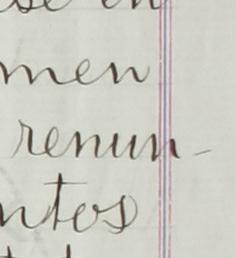 se en
men
renun-
ntos